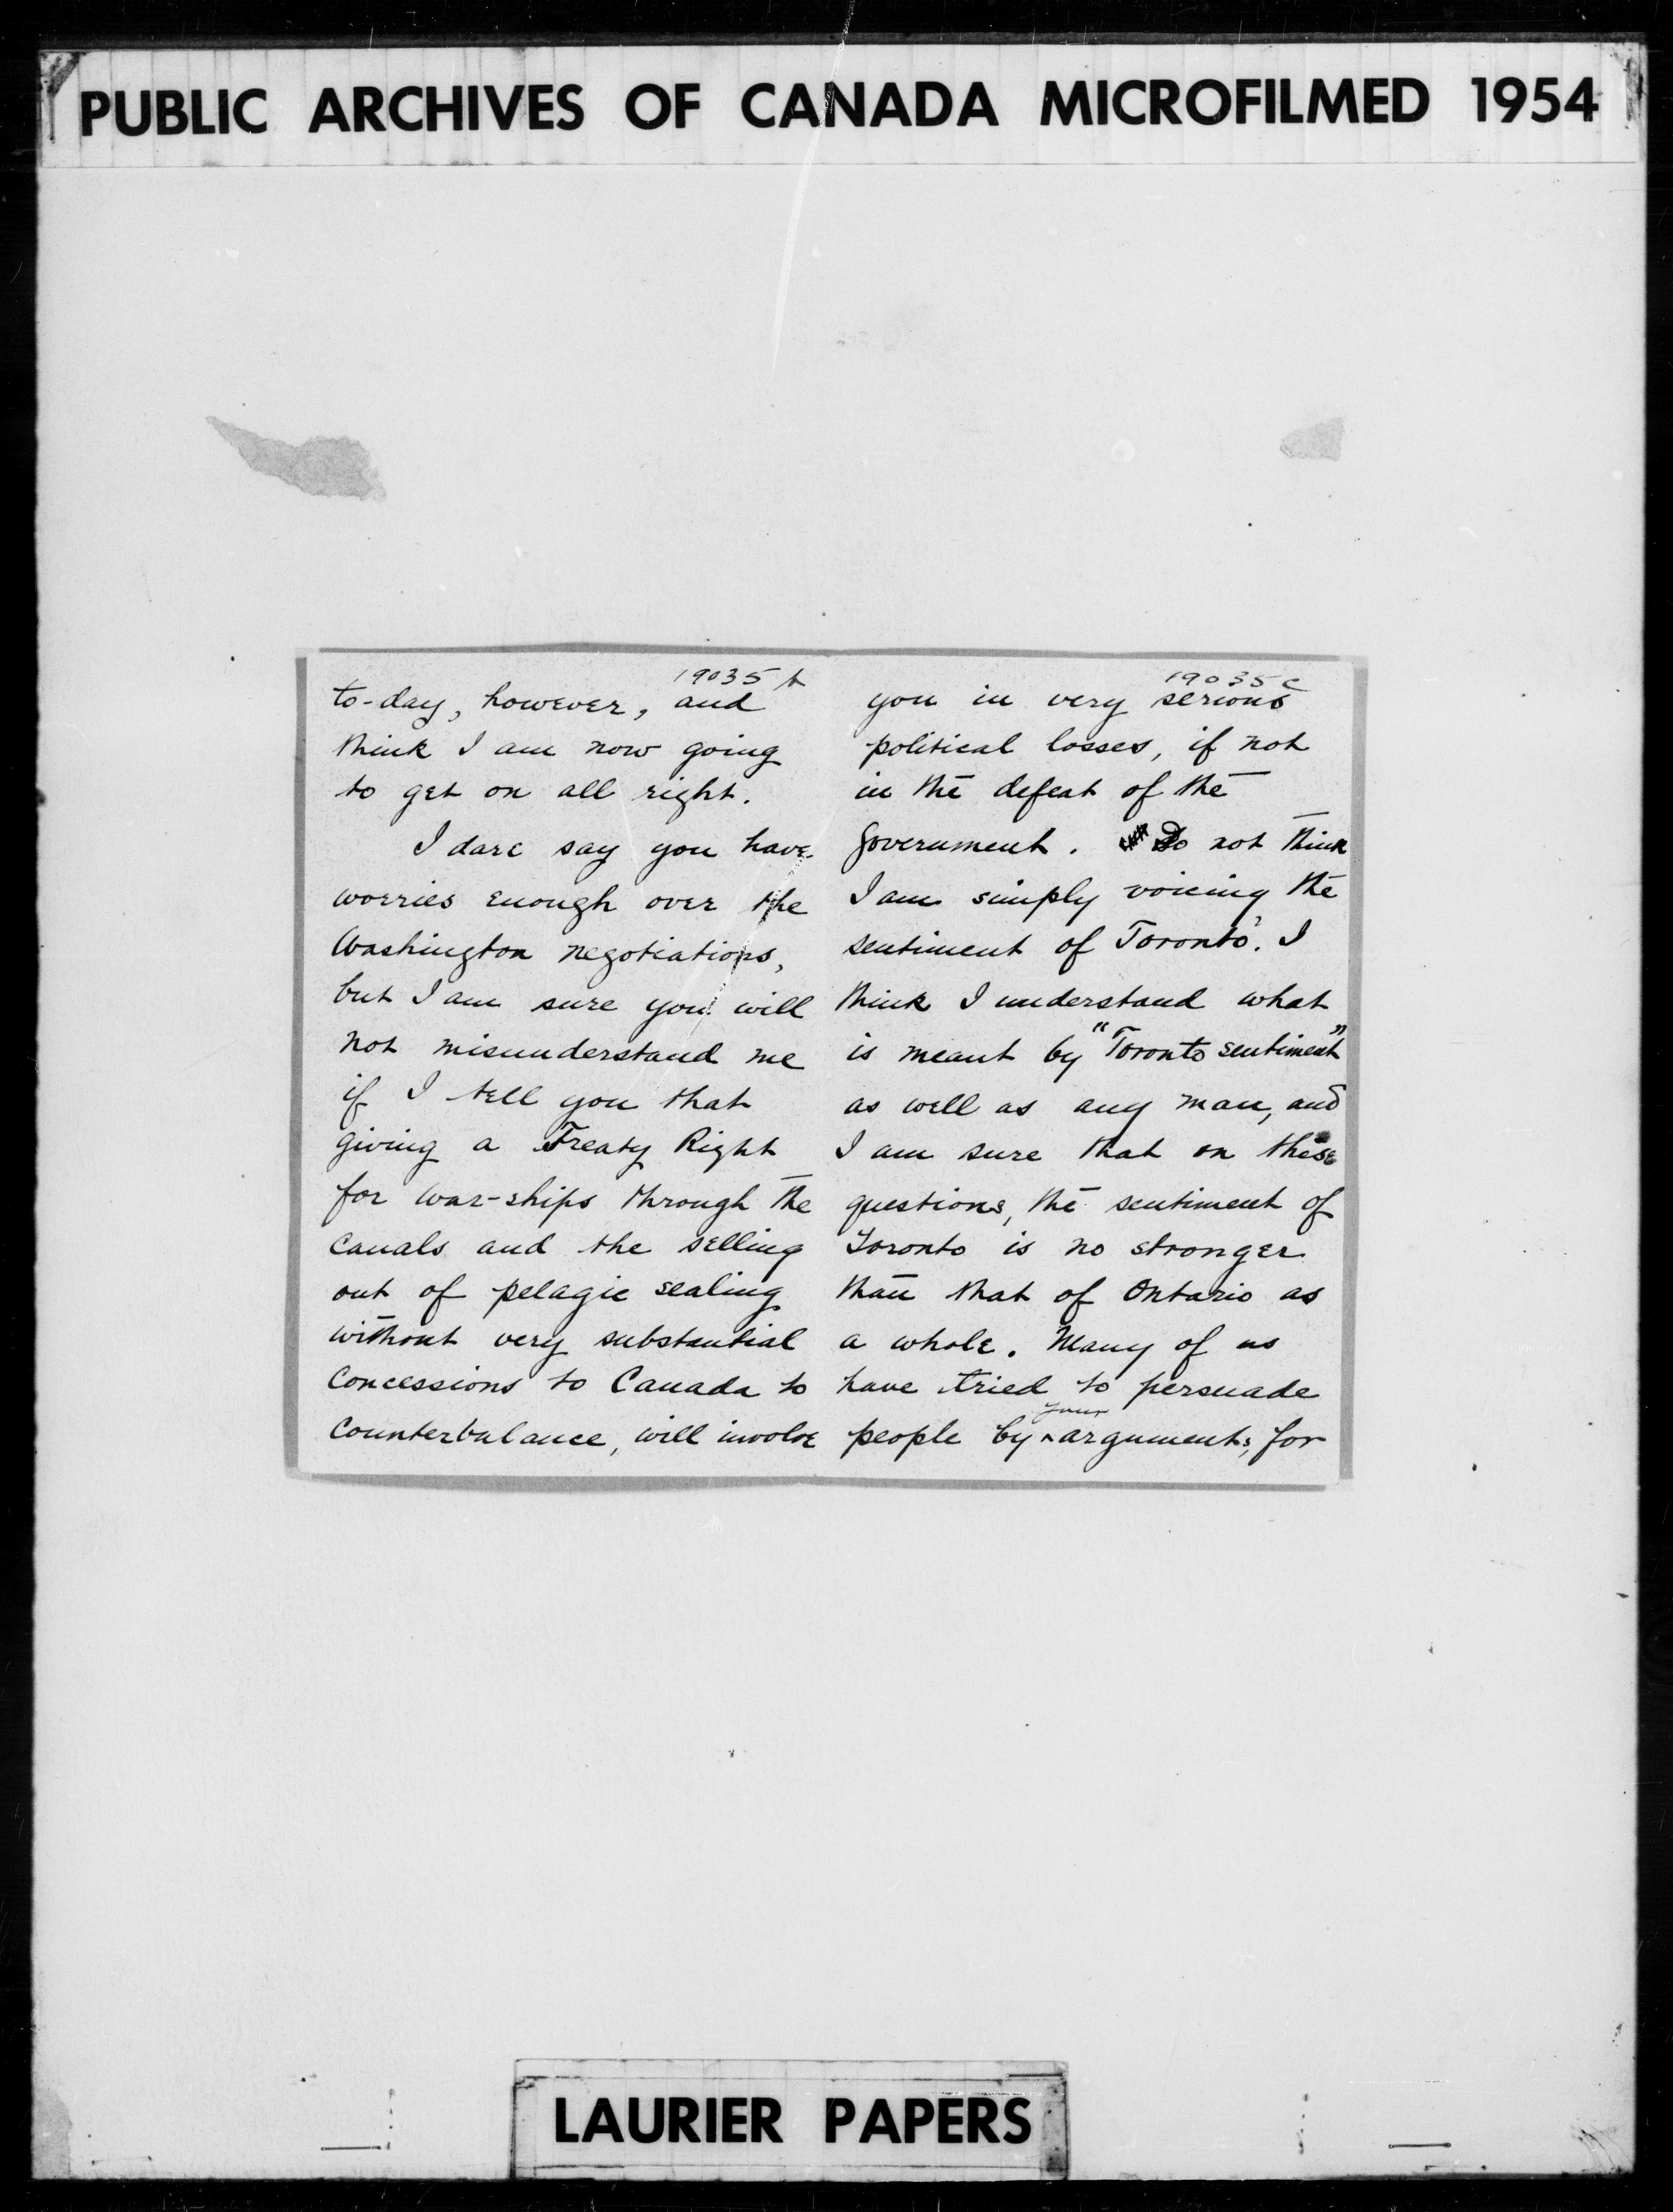 PUBLIC ARCHIVES OF CANADA MICROFILMED 1954
19035 b
to-day, however, and
think I am now going
to get on all right.
I dare say you have
worries enough over the
Washington negotiations,
but I am sure you will
not misunderstand me
if I tell you that
giving a Treaty Right
for war-ships through the
Canals and the selling
out of pelagic sealing
without very substantial
Concessions to Canada to
Counterbalance, will involve
19035 c
you in very serious
political losses, if not
in the defeat of the
Government. Do not think
I am simply voicing the
sentiment of Toronto. I
think I understand what
is meant by "Toronto sentiment"
as well as any man, and
I am sure that on these
questions, the sentiment of
Toronto is no stronger
than that of Ontario as
a whole. Many of us
have tried to persuade
people by your arguments, for
LAURIER PAPERS